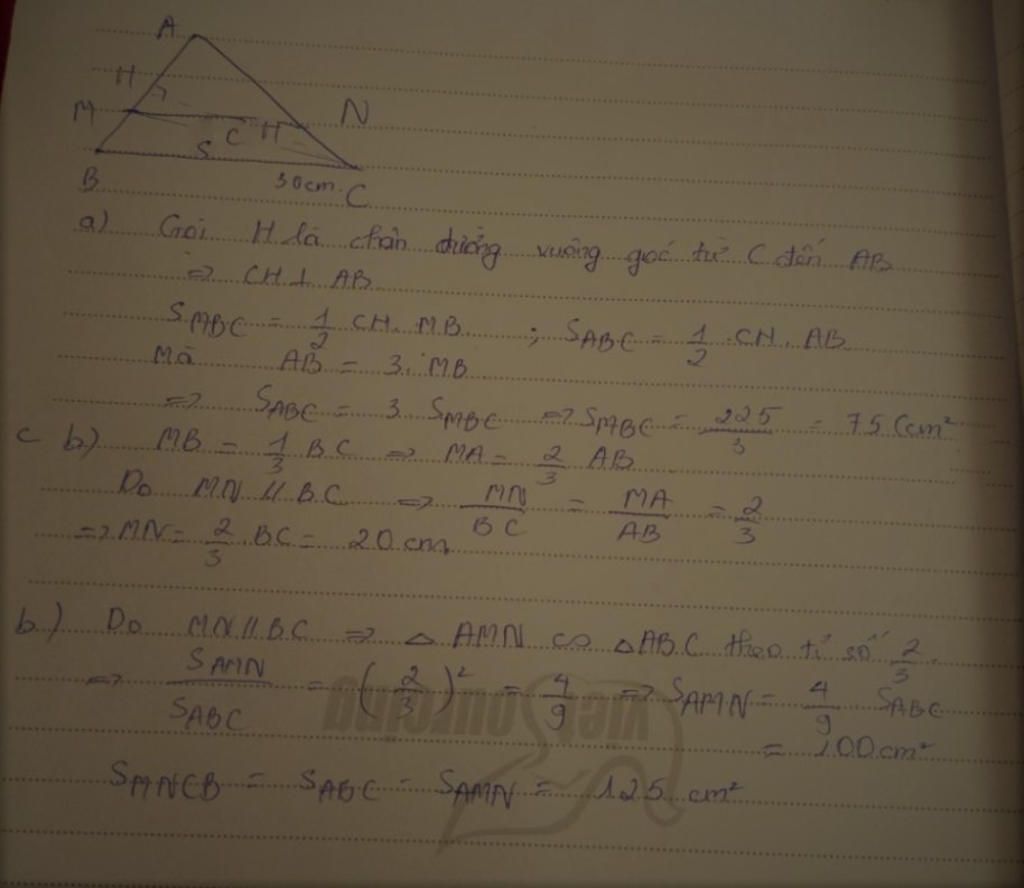 A
H
M
N
C H
S
B
30cm
C
a) Gọi H là chân đường vuông góc từ C đến AB
=> CH ⊥ AB
S_MBC = 1/2 CH. MB ; S_ABC = 1/2 . CH. AB
Mà AB = 3. MB
=> S_ABC = 3 S_MBC => S_MBC = 225/3 = 75 (cm²
c b) MB = 1/3 BC => MA = 2/3 AB
Do MN // BC => MN/BC = MA/AB = 2/3
=> MN = 2/3 . BC = 20 cm
b) Do MN // BC => △ AMN ∽ △ABC theo tỉ số 2/3.
=> S_AMN/S_ABC = (2/3)² = 4/9 => S_AMN = 4/9 S_ABC
= 100 cm²
S_MNCB = S_ABC - S_AMN = 125 cm²